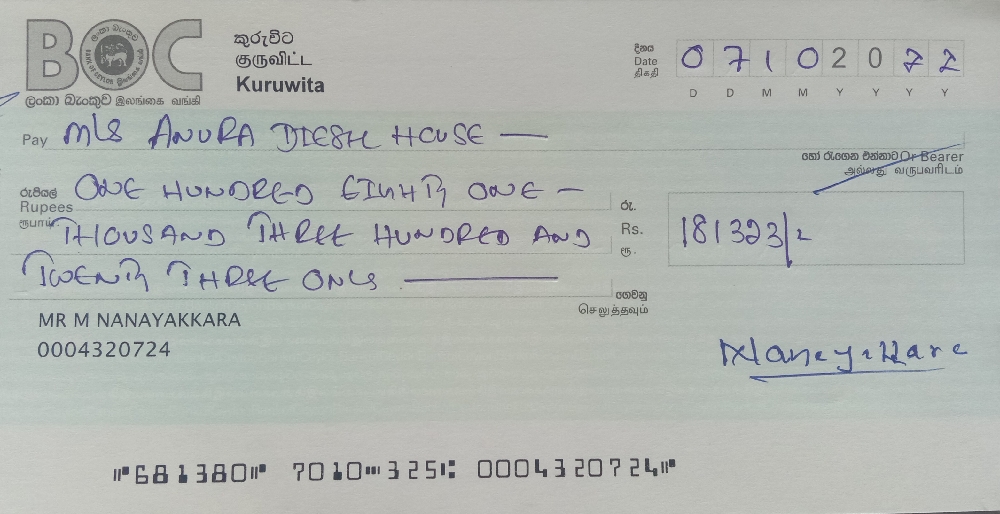 BOC
ලංකා බැංකුව இலங்கை வங்கி
කුරුවිට
குருவிட்ட
Kuruwita
දිනය
Date
திகதி
0 7 1 0 2 0 2 2
D D M M Y Y Y Y
Pay M/S ANURA DIESEL HOUSE —
හෝ රැගෙන එන්නාට Or Bearer
அல்லது வருபவரிடம்
රුපියල් ONE HUNDRED EIGHTY ONE —
Rupees
ரூபாய் THOUSAND THREE HUNDRED AND
TWENTY THREE ONLY —
රු.
Rs. 181323/-
ரூ.
ගෙවනු
செலுத்தவும்
MR M NANAYAKKARA
0004320724
⑈681380⑈ 7010⑉325⑆ 0004320724⑈